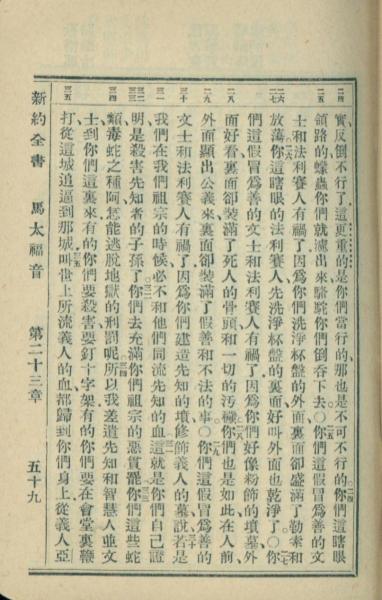 實反倒不行了這更重的是你們當行的那也是不可不行的你們這瞎眼
領路的蠓蟲你們就濾出來駱駝你們倒吞下去○你們這假冒爲善的文
士和法利賽人有禍了因爲你們洗淨杯盤的外面裏面卻盛滿了勒索和
放蕩你這瞎眼的法利賽人先洗淨杯盤的裏面好叫外面也乾淨了○你
們這假冒爲善的文士和法利賽人有禍了因爲你們好像粉飾的墳墓外
面好看裏面卻裝滿了死人的骨頭和一切的汚穢你們也是如此在人前
外面顯出公義來裏面卻裝滿了假善和不法的事○你們這假冒爲善的
文士和法利賽人有禍了因爲你們建造先知的墳修飾義人的墓說若是
我們在我們祖宗的時候必不和他們同流先知的血這就是你們自己證
明是殺害先知者的子孫了你們去充滿你們祖宗的惡貫罷你們這些蛇
類毒蛇之種阿怎能逃脫地獄的刑罰呢所以我差遣先知和智慧人並文
士到你們這裏來有的你們要殺害要釘十字架有的你們要在會堂裏鞭
打從這城追逼到那城叫世上所流義人的血都歸到你們身上從義人亞
新約全書 馬太福音 第二十三章 五十九
二四
二五
二六
二七
二八
二九
三十
三一
三二
三三
三四
三五